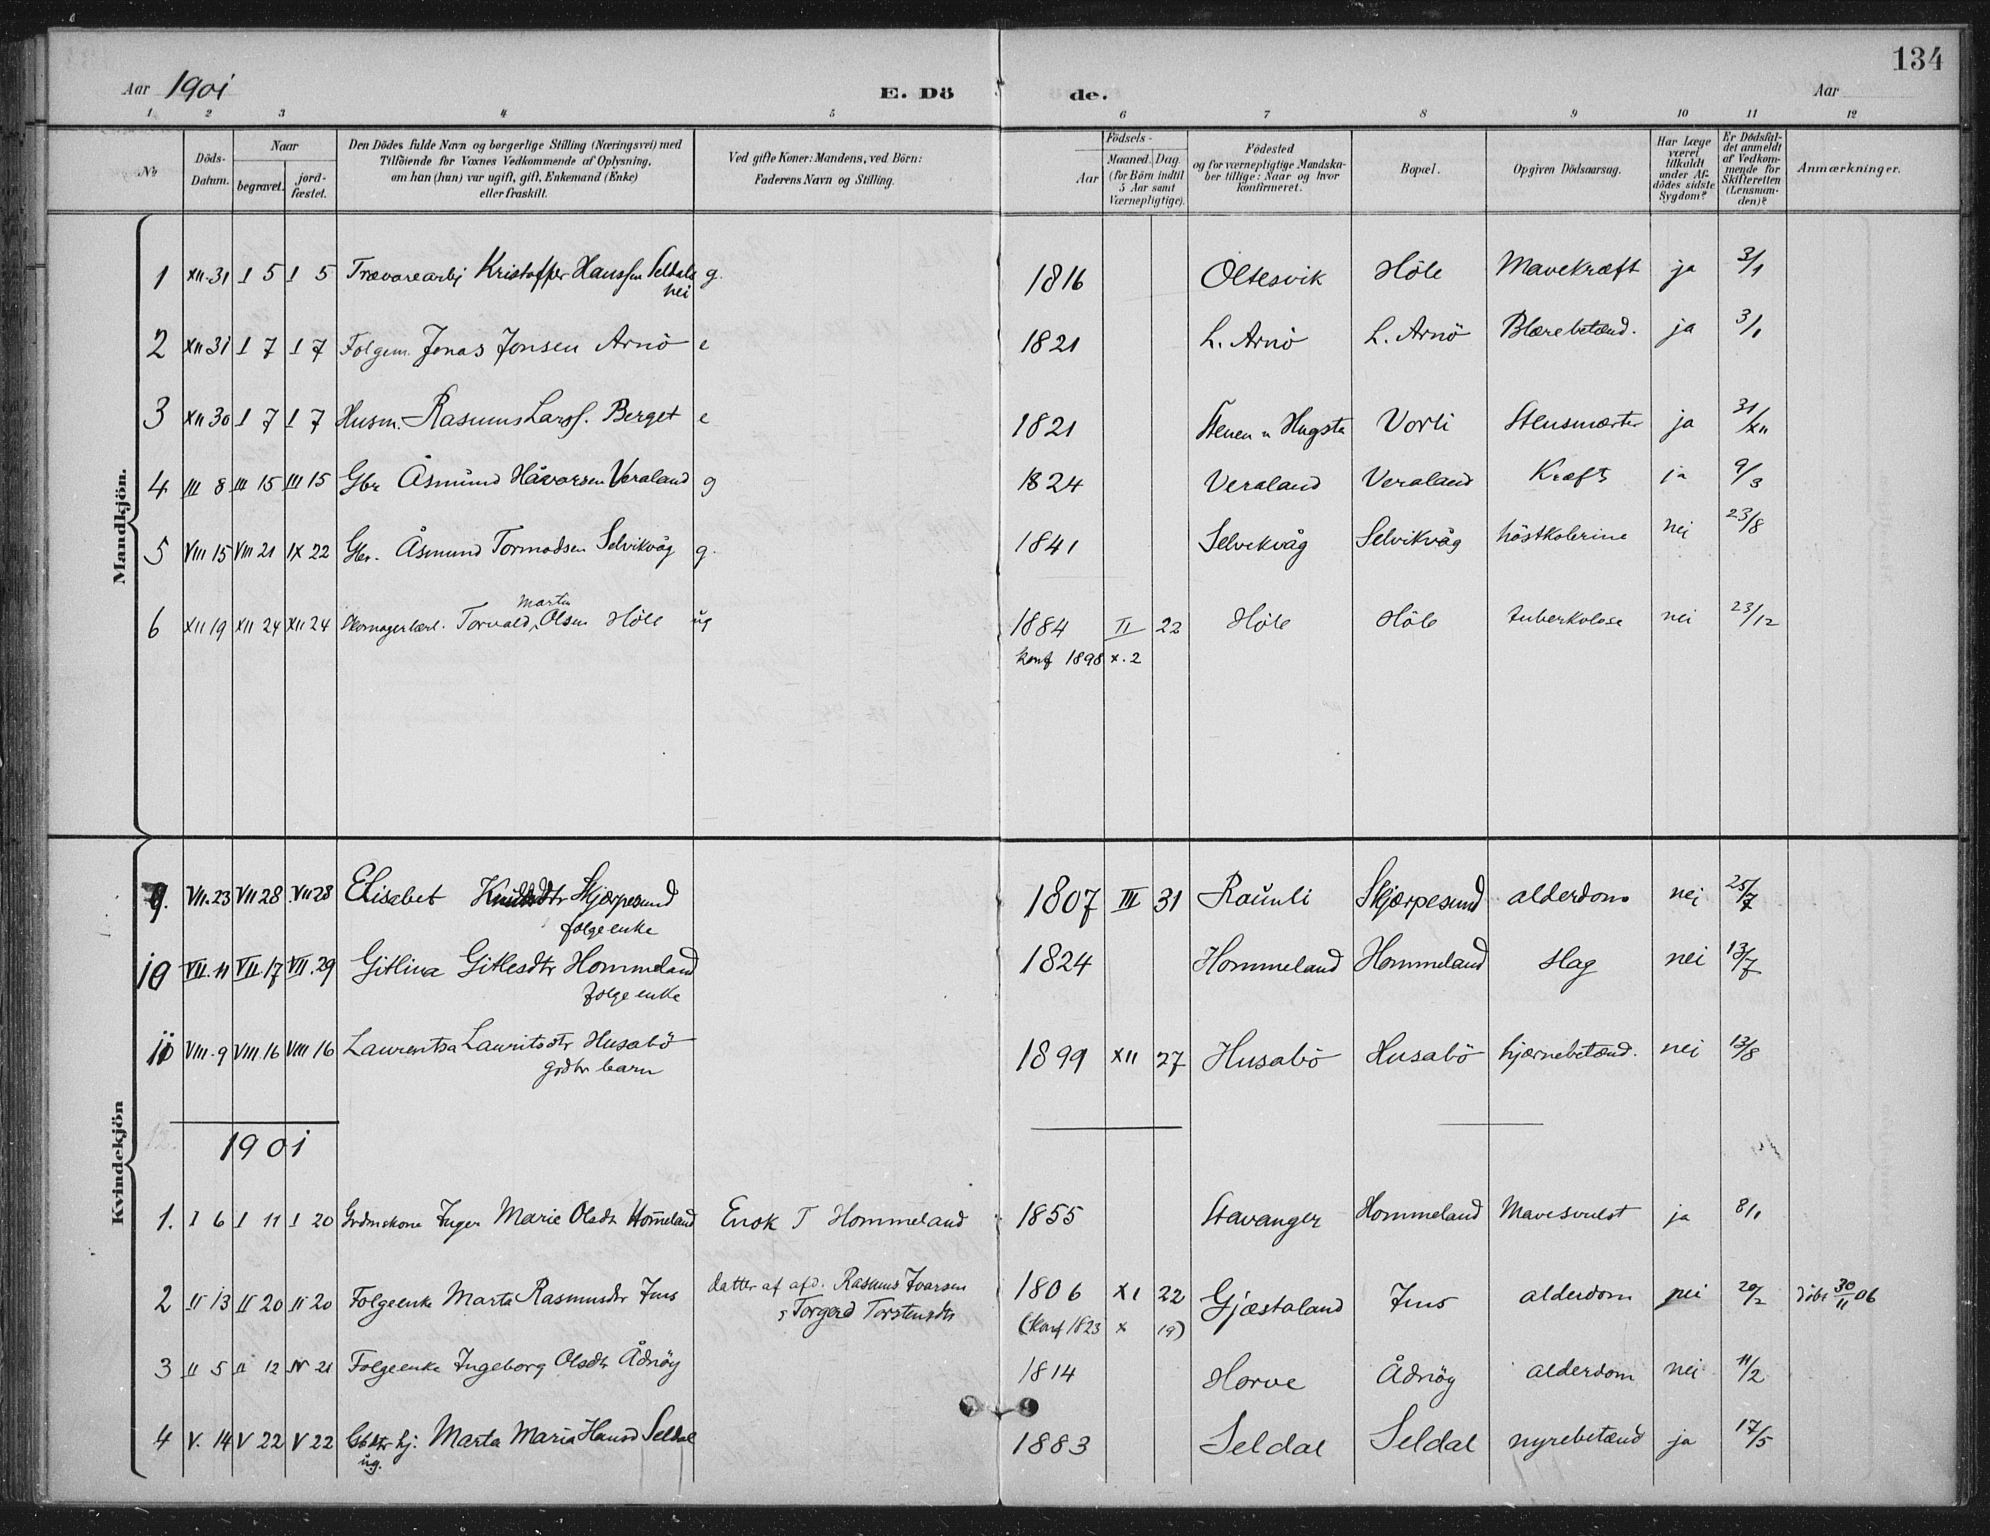 134
Aar 1901 E. Dö de. Aar
1 2 3 4 5 6 7 8 9 10 11 12
No
Döds-Datum.
Naar
begravet.
jord-fæstet.
Den Dödes fulde Navn og borgerlige Stilling (Næringsvei) med
Tilföiende for Voxnes Vedkommende af Oplysning,
om han (hun) var ugift, gift, Enkemand (Enke)
eller fraskilt.
Ved gifte Koner: Mandens, ved Börn:
Faderens Navn og Stilling.
Födsels-
Aar
Maaned. Dag
(for Börn indtil
5 Aar samt
Værnepligtige).
Födested
og for værnepligtige Mandska-
ber tillige: Naar og hvor
konfirmeret.
Bopæl.
Opgiven Dödsaarsag.
Har Læge
været
tilkaldt
under Af-
dödes sidste
Sygdom?
Er Dödsfal-
det anmeldt
af Vedkom-
mende for
Skifteretten
(Lensman-
den)?
Anmærkninger.
Mandkjön.
1 XII.31 I 5 I 5 Trævarearbj Kristoffer Hanssen Seldal g. 1816 Oltesvik Höle Mavekræft ja 3/1
nei
2 XII 31 I 7 I 7 Folgem. Jonas Jonsen Arnö e 1821 L. Arnö L. Arnö Blærebetænd. ja 3/1
3 XII 30 I 7 I 7 Husm. Rasmus Larss. Berget e 1821 Stenen u Hugsta Vorli Stensmerter ja 31/XII
4 III 8 III 15 III 15 Gbr Åsmund Håvorsen Veraland g 1824 Veraland Veraland Kræft ja 9/3
5 VIII 15 VIII 21 IX 22 Gbr. Åsmund Tormodsen Selvikvåg g. 1841 Selvikvåg Selvikvåg höstkolerine nei 23/8
Martin
6 XII 19 XII 24 XII 24 Skomagerlærl. Torvald Olsen Höle ug 1884 II 22 Höle Höle tuberkolose nei 23/12
konf 1898 X. 2
Kvindekjön
9. VII.23 VII 28 VII 28 Elisabet Knutsdtr Skjørpesund 1807 III 31 Raunli Skjærpesund alderdom nei 25/7
folgeenke
10 VII.11 VII.17 VII.29 Gitlina Gitlesdtr Hommeland 1824 Hommeland Hommeland slag nei 13/7
folgeenke
11 VIII.9 VIII 16 VIII 16 Laurentsa Lauritsdtr Husabö 1899 XII 27 Husabö Husabö hjernebetænd. nei 13/8
grdbr barn
1901
1. I 6 I 11 I 20 Grdmskone Inger Marie Olsdtr Hom̄eland Enok T Hommeland 1855 Stavanger Hommeland Mavesvulst ja 8/1
2 II 13 II 20 II 20 Folgeenke Marta Rasmusdtr Ims datter af afd. Rasmus Ivarsen 1806 XI 22 Gjæstaland Ims alderdom nei 20/2 döbt 30/11 06
Torgerd Torstensdtr (konf 1823 X 19)
3 II 5 II 12 IV 21 Folgeenke Ingeborg Olsdtr Ådnöy 1814 Horve Ådnöy alderdom nei 11/2
4 V. 14 V 22 V 22 Gbdtr hj. Marta Maria Hansd Seldal 1883 Seldal Seldal nyrebetænd ja 17/5
ug.